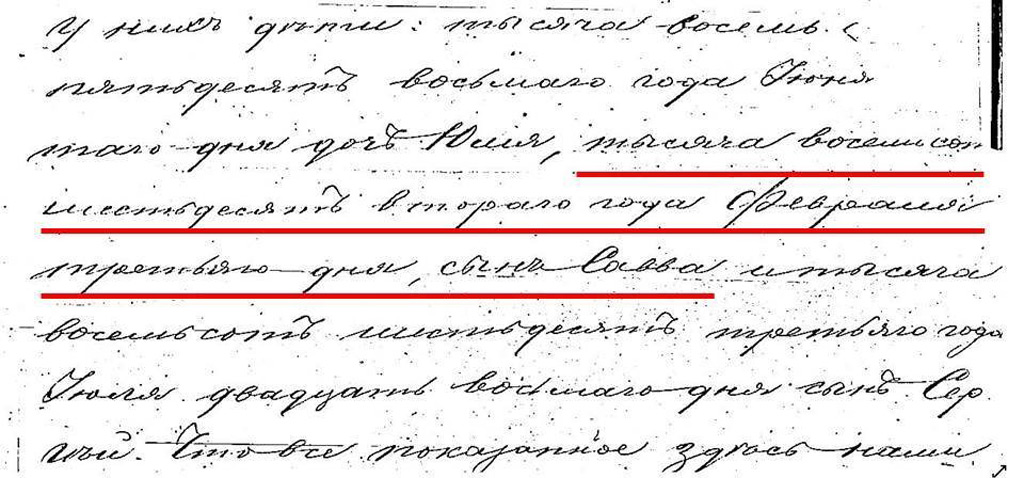 У нихъ дѣти: тысяча восемь
пятьдесятъ восьмаго года Іюня
таго дня дочь Юлія, тысяча восемьсот
шестьдесятъ втораго года Февраля
третьяго дня, сынъ Савва и тысяча
восемьсотъ шестьдесятъ третьяго года
Іюля двадцать восьмаго дня сынъ Сер
гѣй. Что все показанное здѣсь нами